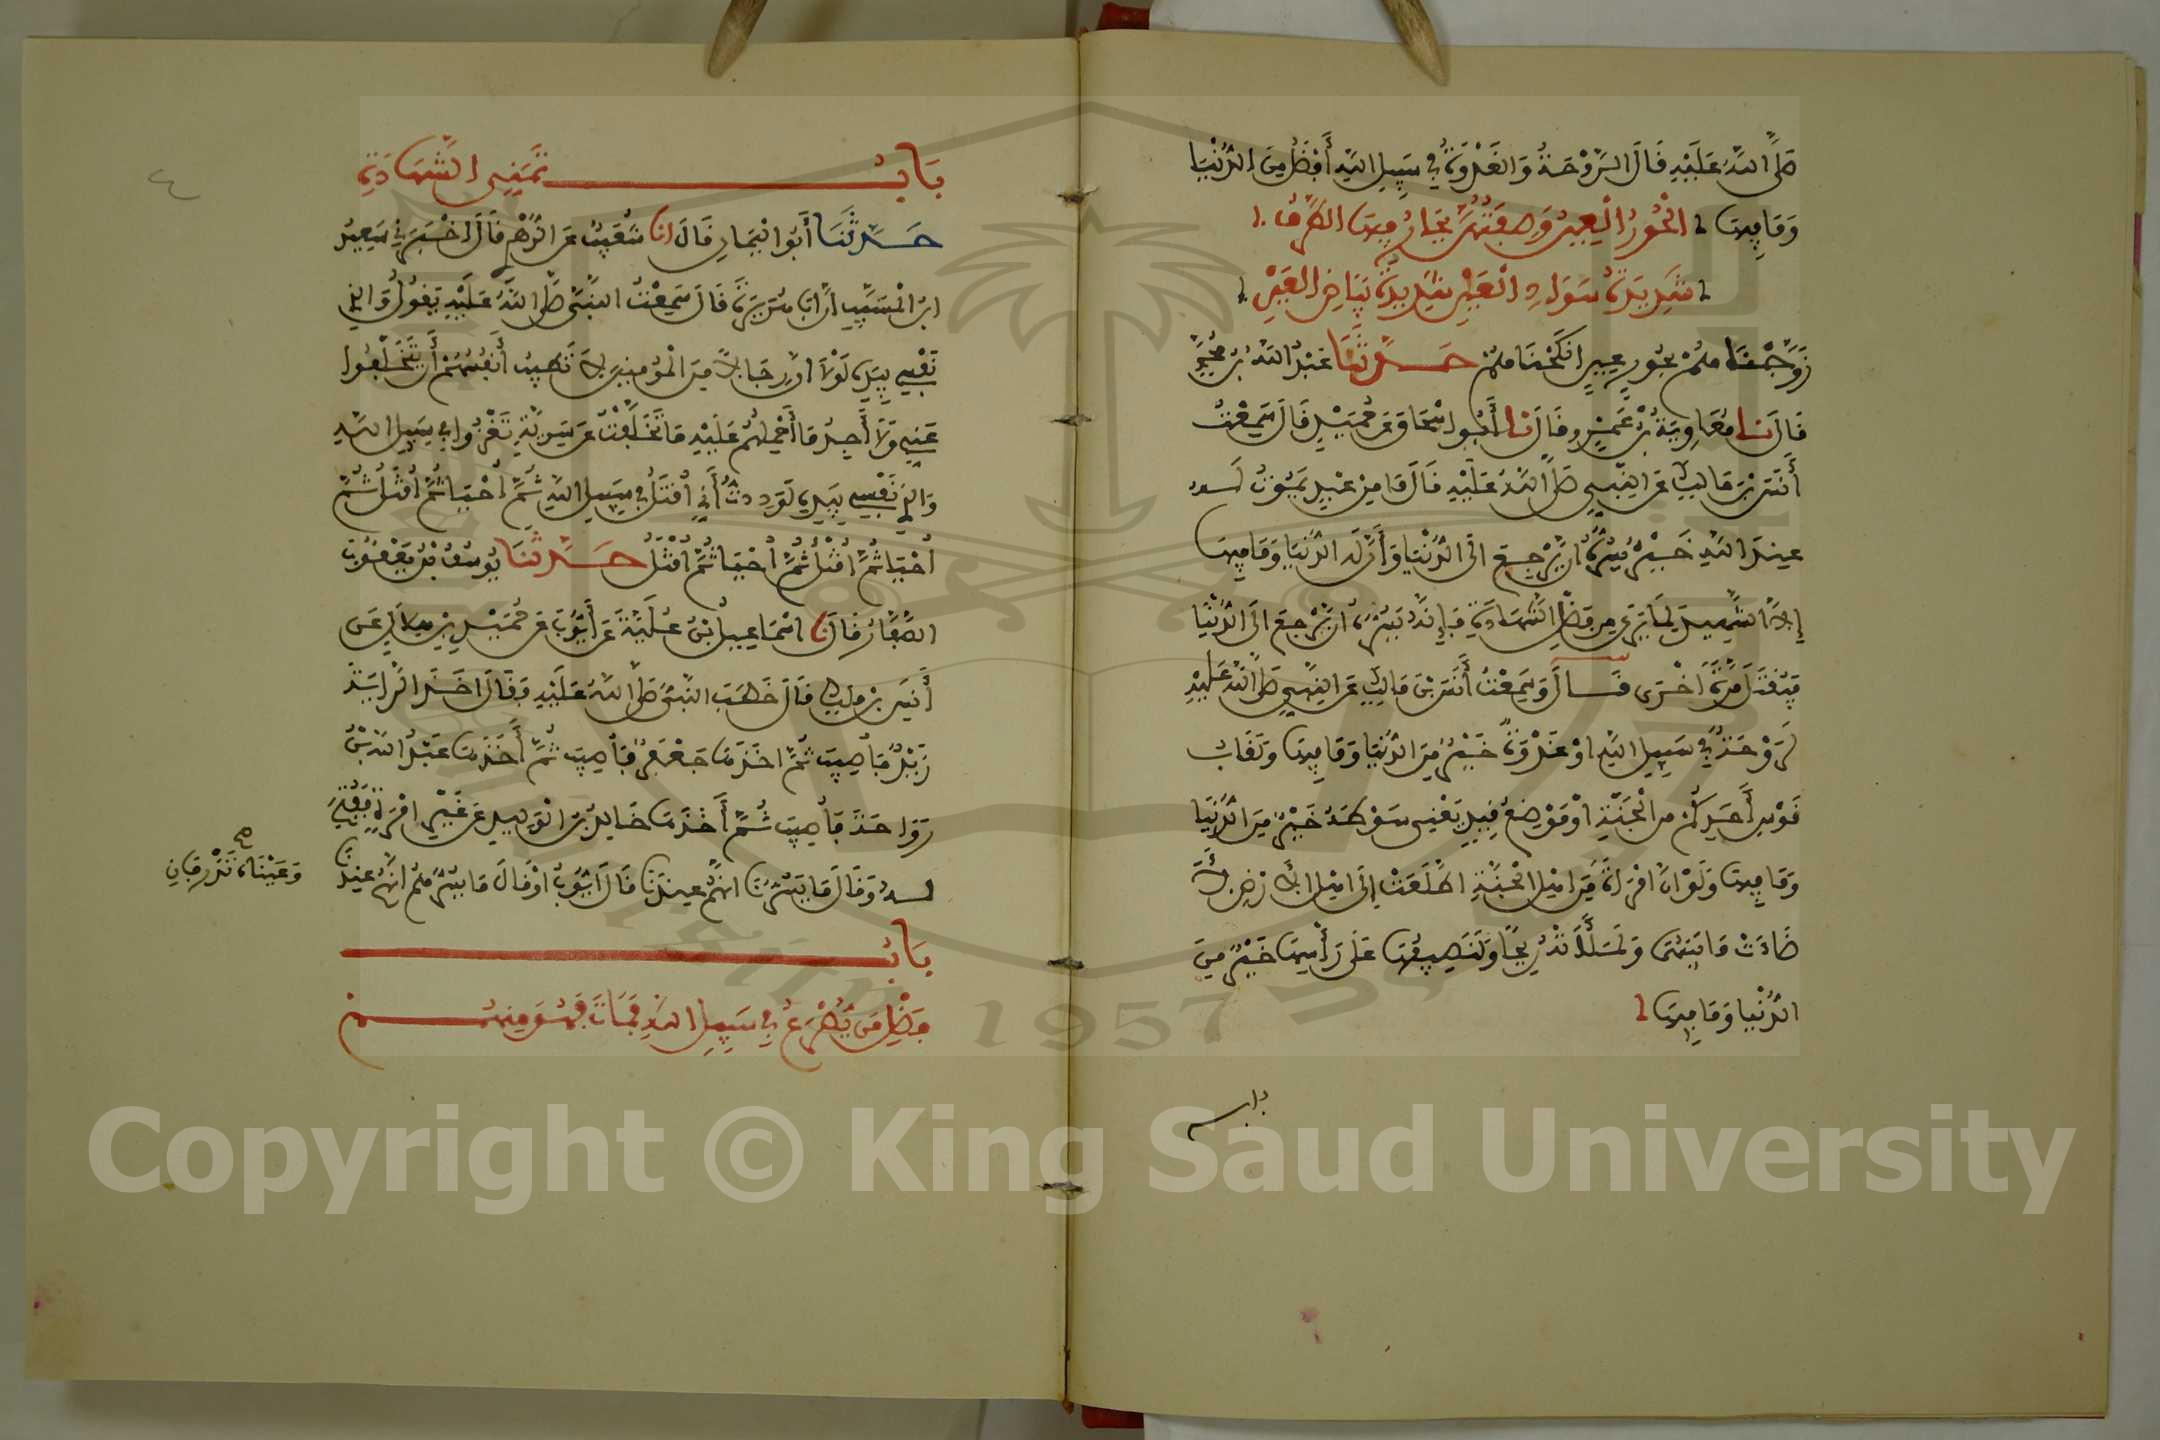 صَلَّى اللَّهُ عَلَيْهِ قَالَ الرَّوْحَةُ وَالْغَدْوَةُ فِي سَبِيلِ اللَّهِ أَفْضَلُ مِنَ الدُّنْيَا
وَمَا فِيهَا الْحُورُ الْعِينُ وَصِفَتُهُنَّ يَحَارُ فِيهَا الطَّرْفُ
شَدِيدَةُ سَوَادِ الْعَيْنِ شَدِيدَةُ بَيَاضِ الْعَيْنِ
زَوَّجْنَاهُمْ بِحُورٍ عِينٍ أَنْكَحْنَاهُمْ حَدَّثَنَا عَبْدُ اللَّهِ بْنُ مُحَمَّدٍ
قَالَ نا مُعَاوِيَةُ بْنُ عَمْرٍو قَالَ نا أَبُو اسْحَاقَ عَنْ حُمَيْدٍ قَالَ سَمِعْتُ
أَنَسَ بْنَ مَالِكٍ عَنِ النَّبِيِّ صَلَّى اللَّهُ عَلَيْهِ قَالَ مَا مِنْ عَبْدٍ يَمُوتُ لَهُ
عِنْدَ اللَّهِ خَيْرٌ يَسُرُّهُ أَنْ يَرْجِعَ الَى الدُّنْيَا وَأَنَّ لَهُ الدُّنْيَا وَمَا فِيهَا
إِلَّا الشَّهِيدَ لِمَا يَرَى مِنْ فَضْلِ الشَّهَادَةِ فَإِنَّهُ يَسُرُّهُ أَنْ يَرْجِعَ الَى الدُّنْيَا
فَيُقْتَلَ مَرَّةً اخْرَى قَالَ وَسَمِعْتُ أَنَسَ بْنَ مَالِكٍ عَنِ النَّبِيِّ صَلَّى اللَّهُ عَلَيْهِ
لَرَوْحَةٌ فِي سَبِيلِ اللَّهِ اوْ غَدْوَةٌ خَيْرٌ مِنَ الدُّنْيَا وَمَا فِيهَا وَلَقَابُ
قَوْسِ أَحَدِكُمْ مِنَ الْجَنَّةِ اوْ مَوْضِعُ قِيدٍ يَعْنِي سَوْطَهُ خَيْرٌ مِنَ الدُّنْيَا
وَمَا فِيهَا وَلَوْ انَّ امْرَاةً مِنَ اهْلِ الْجَنَّةِ اطَّلَعَتْ إِلَى اهْلِ الارْضِ لَأَ
ضَاءَتْ مَا بَيْنَهُمَا وَلَمَلَأَتْهُ رِيحًا وَلَنَصِيفُهَا عَلَى رَأْسِهَا خَيْرٌ مِنَ
الدُّنْيَا وَمَا فِيهَا
باب
بَابُ تَمَنِّي الشَّهَادَةِ
حَدَّثَنَا أَبُوا الْيَمَانِ قَالَ انا شُعَيْبٌ عَنِ الزُّهْرِيِّ قَالَ اخْبَرَنِي سَعِيدُ
ابْنُ الْمُسَيِّبِ انَّ ابَا هُرَيْرَةَ قَالَ سَمِعْتُ النَّبِيَّ صَلَّى اللَّهُ عَلَيْهِ يَقُولُ وَالَّذِي
نَفْسِي بِيَدِهِ لَوْلَا انَّ رِجَالًا مِنَ الْمُؤْمِنِينَ لَا تَطِيبُ أَنْفُسُهُمْ أَنْ يَتَخَلَّفُوا
عَنِّي وَلَا أَجِدُ مَا أَحْمِلُهُمْ عَلَيْهِ مَا تَخَلَّفْتُ عَنْ سَرِيَّةٍ تَغْزُوا فِي سَبِيلِ اللَّهِ
وَالَّذِي نَفْسِي بِيَدِهِ لَوَدِدتُّ أَنِّي اقْتَلُ فِي سَبِيلِ اللَّهِ ثُمَّ احْيَا ثُمَّ اقْتَلُ ثُمَّ
احْيَا ثُمَّ اقْتَلُ ثُمَّ احْيَا ثُمَّ اقْتَلُ حَدَّثَنَا يُوسُفُ بْنُ يَعْقُوبَ
الصَّفَّارُ قَالَ نا اسْمَاعِيلُ بْنُ عُلَيَّةَ عَنْ أَيُّوبَ عَنْ حُمَيْدِ بْنِ هِلَالٍ عَنْ
أَنَسِ بْنِ مَالِكٍ قَالَ خَطَبَ النَّبِيُّ صَلَّى اللَّهُ عَلَيْهِ فَقَالَ اخَذَ الرَّايَةَ
زَيْدٌ فَأُصِيبَ ثُمَّ اخَذَهَا جَعْفَرٌ فَأُصِيبَ ثُمَّ أَخَذَهَا عَبْدُ اللَّهِ بْنُ
رَوَاحَةَ فَأُصِيبَ ثُمَّ أَخَذَهَا خَالِدُ بْنُ الْوَلِيدِ عَنْ غَيْرِ امْرَةٍ فَفُتِحَ
لَهُ وَقَالَ مَا يَسُرُّنَا انَّهُمْ عِنْدَنَا قَالَ أَيُّوبُ اوْ قَالَ مَا يَسُرُّهُمْ انَّهُمْ عِنْدَنَا
وَعَيْنَاهُ تَذْرِفَانِ
صح
بَابُ
فَضْلِ مَنْ يُصْرَعُ فِي سَبِيلِ اللَّهِ فَمَاتَ فَهُوَ مِنْهُمْ
1957
Copyright © King Saud University